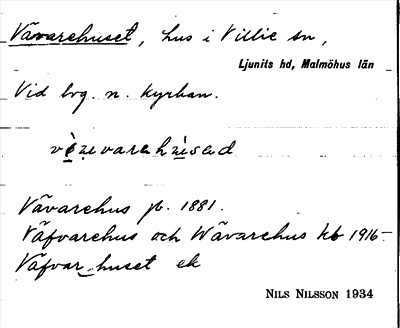 Vävarehuset, hus i Villie sn,
Ljunits hd, Malmöhus län
Vid lvg. n. kyrkan.
Vävarehus jb. 1881.
Väfvarehus och Wävarehus kb 1916-
Väfvar_huset ek
NILS NILSSON 1934